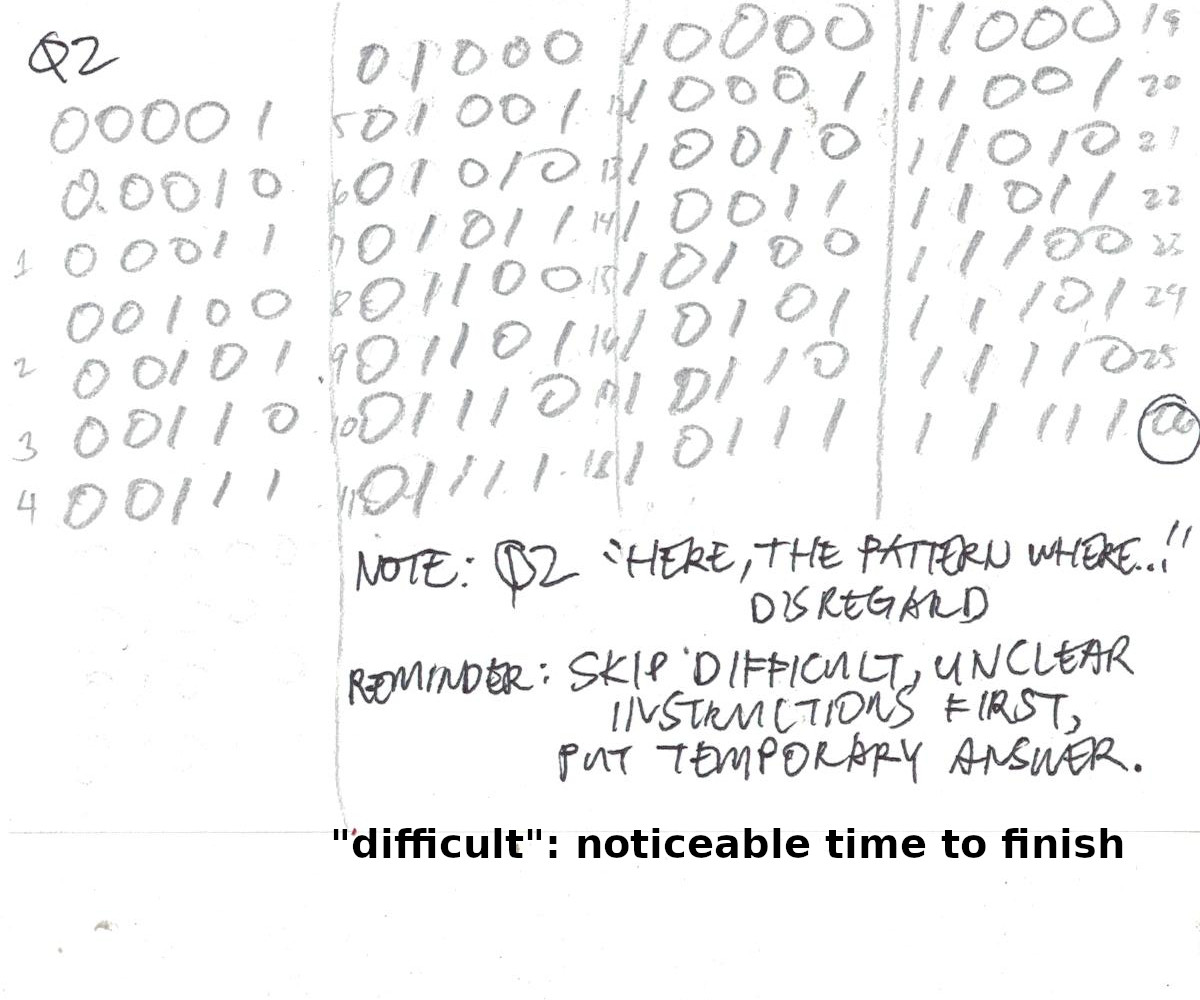 Q2
00001
00010
1 00011
00100
2 00101
3 00110
4 00111
01000
5 01001
6 01010
7 01011
8 01100
9 01101
10 01110
11 01111
10000
12 10001
13 10010
14 10011
15 10100
16 10101
17 10110
18 10111
11000 19
11001 20
11010 21
11011 22
11100 23
11101 24
11110 25
11111 26
NOTE: Q2 "HERE, THE PATTERN WHERE..."
DISREGARD
REMINDER: SKIP DIFFICULT, UNCLEAR
INSTRUCTIONS FIRST,
PUT TEMPORARY ANSWER.
"difficult": noticeable time to finish